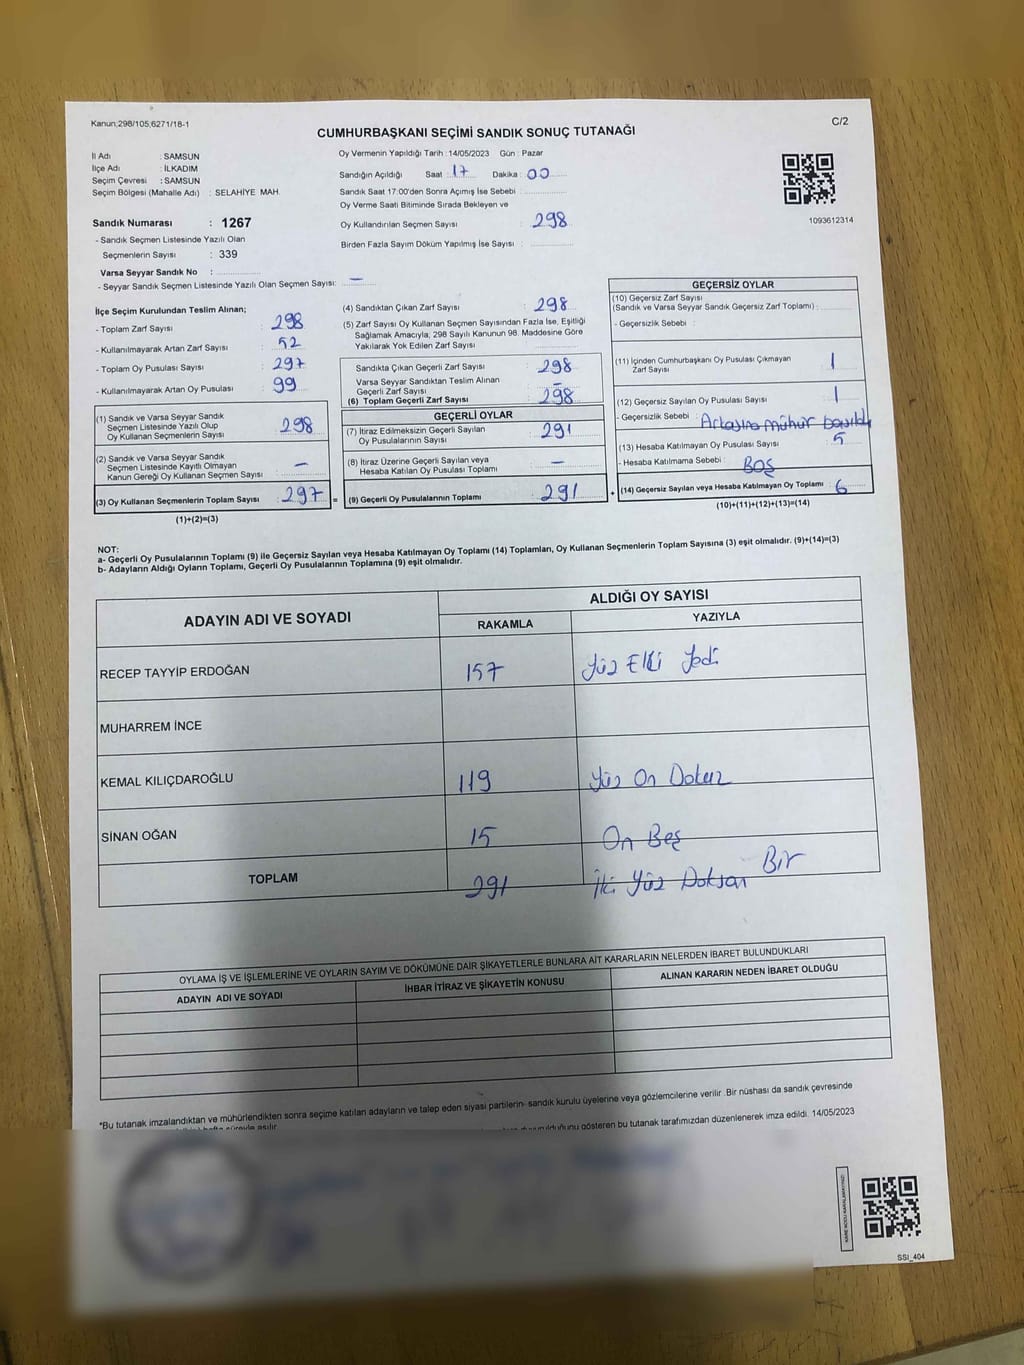 Kanun;298/105,6271/18-1
C/2
CUMHURBAŞKANI SEÇİMİ SANDIK SONUÇ TUTANAĞI
İl Adı : SAMSUN
İlçe Adı : İLKADIM
Seçim Çevresi : SAMSUN
Seçim Bölgesi (Mahalle Adı) : SELAHİYE MAH.
Oy Vermenin Yapıldığı Tarih : 14/05/2023 Gün : Pazar
Sandığın Açıldığı Saat : 17 Dakika : 00
Sandık Saat 17:00'den Sonra Açımış İse Sebebi :
Oy Verme Saati Bitiminde Sırada Bekleyen ve
Oy Kullandırılan Seçmen Sayısı : 298
Birden Fazla Sayım Döküm Yapılmış İse Sayısı :
1093612314
Sandık Numarası : 1267
- Sandık Seçmen Listesinde Yazılı Olan
Seçmenlerin Sayısı : 339
Varsa Seyyar Sandık No :
- Seyyar Sandık Seçmen Listesinde Yazılı Olan Seçmen Sayısı: –
İlçe Seçim Kurulundan Teslim Alınan;
- Toplam Zarf Sayısı : 298
- Kullanılmayarak Artan Zarf Sayısı : 52
- Toplam Oy Pusulası Sayısı : 297
- Kullanılmayarak Artan Oy Pusulası : 99
(1) Sandık ve Varsa Seyyar Sandık
Seçmen Listesinde Yazılı Olup
Oy Kullanan Seçmenlerin Sayısı : 298
(2) Sandık ve Varsa Seyyar Sandık
Seçmen Listesinde Kayıtlı Olmayan
Kanun Gereği Oy Kullanan Seçmen Sayısı : –
(3) Oy Kullanan Seçmenlerin Toplam Sayısı : 297 =
(1)+(2)=(3)
(4) Sandıktan Çıkan Zarf Sayısı : 298
(5) Zarf Sayısı Oy Kullanan Seçmen Sayısından Fazla İse, Eşitliği
Sağlamak Amacıyla; 298 Sayılı Kanunun 98. Maddesine Göre
Yakılarak Yok Edilen Zarf Sayısı
Sandıkta Çıkan Geçerli Zarf Sayısı : 298
Varsa Seyyar Sandıktan Teslim Alınan
Geçerli Zarf Sayısı : –
(6) Toplam Geçerli Zarf Sayısı : 298
GEÇERLİ OYLAR
(7) İtiraz Edilmeksizin Geçerli Sayılan
Oy Pusulalarının Sayısı : 291
(8) İtiraz Üzerine Geçerli Sayılan veya
Hesaba Katılan Oy Pusulası Toplamı : –
(9) Geçerli Oy Pusulalarının Toplamı : 291 +
GEÇERSİZ OYLAR
(10) Geçersiz Zarf Sayısı
(Sandık ve Varsa Seyyar Sandık Geçersiz Zarf Toplamı) :
- Geçersizlik Sebebi :
(11) İçinden Cumhurbaşkanı Oy Pusulası Çıkmayan
Zarf Sayısı : 1
(12) Geçersiz Sayılan Oy Pusulası Sayısı : 1
- Geçersizlik Sebebi : Arkasına mühür basıldı
(13) Hesaba Katılmayan Oy Pusulası Sayısı : 5
- Hesaba Katılmama Sebebi : BOŞ
(14) Geçersiz Sayılan veya Hesaba Katılmayan Oy Toplamı : 6
(10)+(11)+(12)+(13)=(14)
NOT:
a- Geçerli Oy Pusulalarının Toplamı (9) ile Geçersiz Sayılan veya Hesaba Katılmayan Oy Toplamı (14) Toplamları, Oy Kullanan Seçmenlerin Toplam Sayısına (3) eşit olmalıdır. (9)+(14)=(3)
b- Adayların Aldığı Oyların Toplamı, Geçerli Oy Pusulalarının Toplamına (9) eşit olmalıdır.
ADAYIN ADI VE SOYADI
ALDIĞI OY SAYISI
RAKAMLA YAZIYLA
RECEP TAYYİP ERDOĞAN 157 Yüz Elli Yedi
MUHARREM İNCE
KEMAL KILIÇDAROĞLU 119 Yüz On Dokuz
SİNAN OĞAN 15 On Beş
TOPLAM 291 İki Yüz Doksan Bir
OYLAMA İŞ VE İŞLEMLERİNE VE OYLARIN SAYIM VE DÖKÜMÜNE DAİR ŞİKAYETLERLE BUNLARA AİT KARARLARIN NELERDEN İBARET BULUNDUKLARI
ADAYIN ADI VE SOYADI İHBAR İTİRAZ VE ŞİKAYETİN KONUSU ALINAN KARARIN NEDEN İBARET OLDUĞU
*Bu tutanak imzalandıktan ve mühürlendikten sonra seçime katılan adayların ve talep eden siyasi partilerin- sandık kurulu üyelerine veya gözlemcilerine verilir. Bir nüshası da sandık çevresinde
hafta süreyle asılır.
duyurulduğunu gösteren bu tutanak tarafımızdan düzenlenerek imza edildi. 14/05/2023
KARE KODU KARALAMAYINIZ!
SSI_404